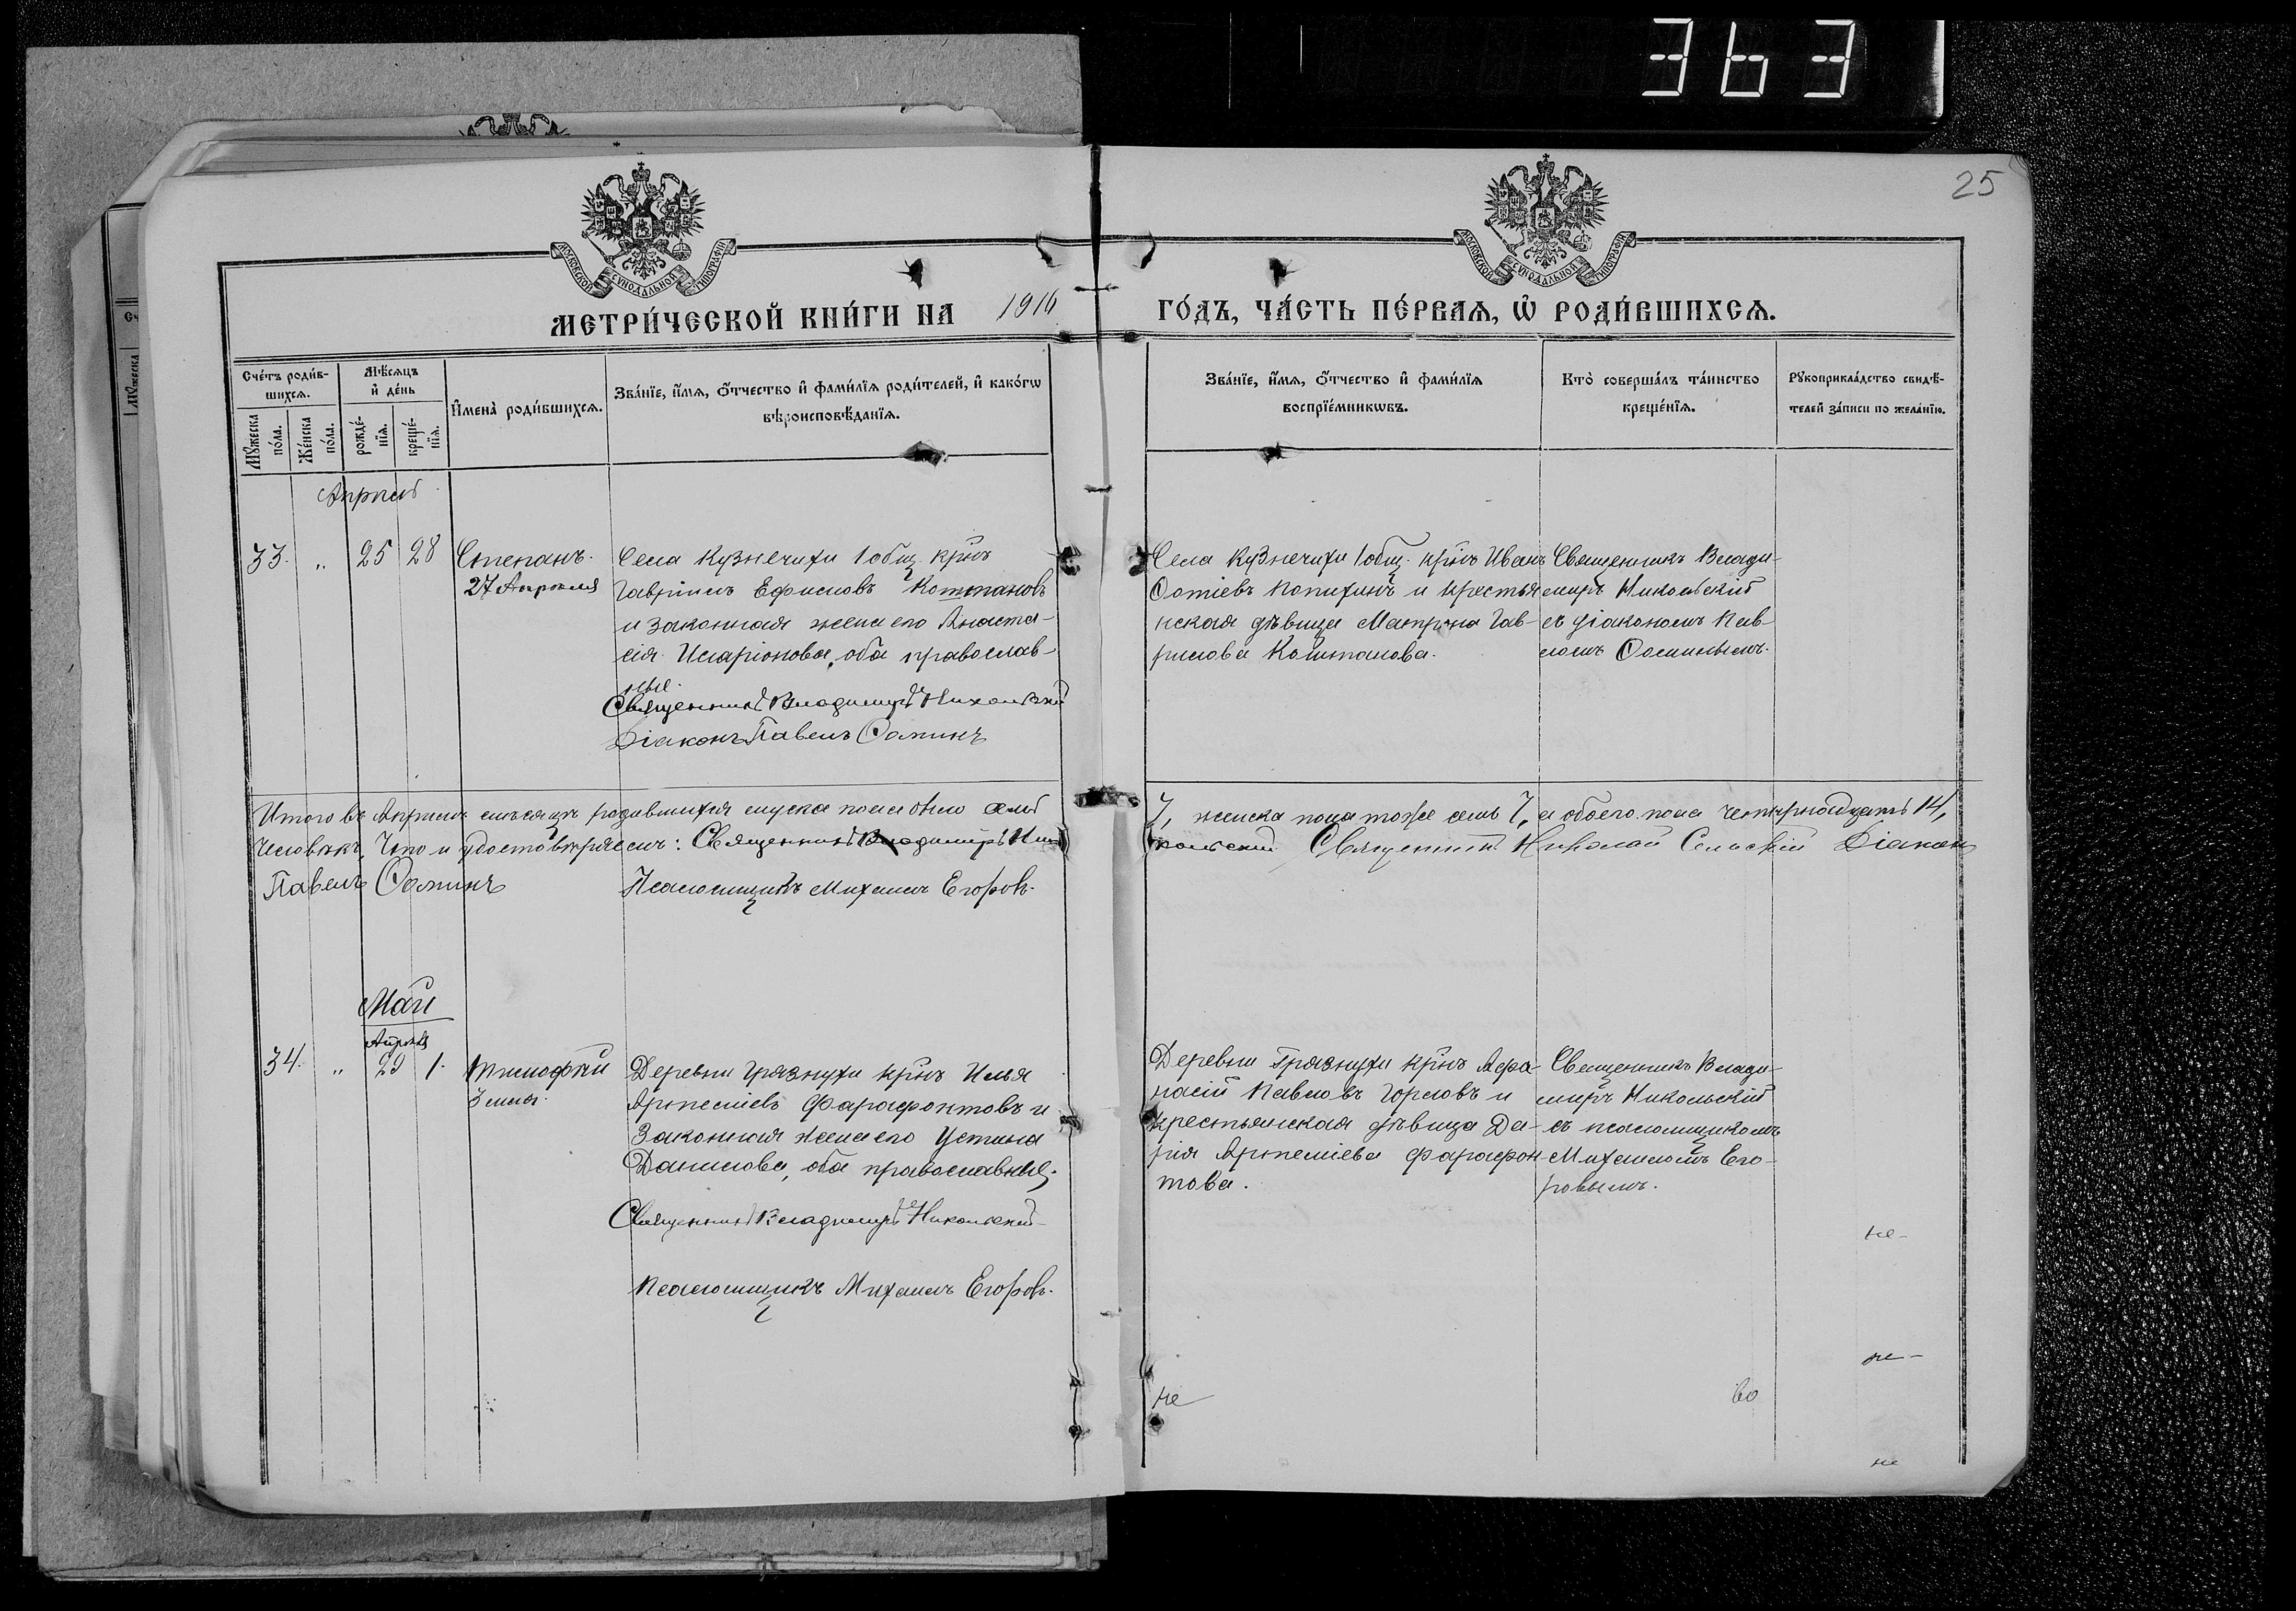 363
25
МОСКОВСКОЙ СУНОДАЛЬНОЙ ТИПОГРАФІИ
МОСКОВСКОЙ СУНОДАЛЬНОЙ ТИПОГРАФІИ
МЕТРИ́ЧЕСКОЙ КНИ́ГИ НА 1916 ГО́ДЪ, ЧА́СТЬ ПЕ́РВАЯ, Ѡ҆ РОДИ́ВШИХСЯ.
Сче́тъ роди́в-
шихся.
Мꙋжеска по́ла.
Же́нска по́ла.
Мѣ́сяцъ
и҆ де́нь
рожде́-
нїя.
креще́-
нїя.
И҆мена̀ роди́вшихся.
Зва́нїе, и҆́мя, ѻ҆́тчество и҆ фами́лїя роди́телей, и҆ како́гѡ
вѣроисповѣ́данїя.
Зва́нїе, и҆́мя, ѻ҆́тчество и҆ фами́лїя
воспрїе́мникѡвъ.
Кто̀ соверша́лъ та́инство
креще́нїя.
Рꙋкоприкла́дство свидѣ́-
телей за́писи по жела́нїю.
Апрѣль
33. „ 25 28
Степанъ.
27 Апрѣля
Села Кузнечихи 1 общ. крнъ
Гавріилъ Ефимовъ Коштановъ
и законная жена его Анаста-
сія Иларіонова, оба православ-
ные.
Священникъ Владиміръ Никольскій
Діаконъ Павелъ Ѳоминъ
Села Кузнечихи 1 общ. крнъ Иванъ
Ѳотіевъ Копихинъ и крестья
нская дѣвица Матрона Гав-
рилова Коштанова.
Священникъ Влади-
миръ Никольскій
съ діакономъ Пав-
ломъ Ѳоминымъ.
Итого въ Апрѣлѣ мѣсяцѣ родившихся мужска пола было семь 7, женска пола тоже семь 7, а обоего пола четырнадцать 14,
человѣкъ, Что и удостовѣряемъ: Священникъ Владиміръ Никольскій Священникъ Николай Сельскій Діаконъ
Павелъ Ѳоминъ Псаломщикъ Михаилъ Егоровъ.
Май
Апрѣля
34. „ 29 1.
Тимофей
3 мая.
Деревни Грязнухи крнъ Илья
Артеміевъ Фарафонтовъ и
законная жена его Устина
Данилова, оба православные.
Священникъ Владиміръ Никольскій
Псаломщикъ Михаилъ Егоровъ.
Деревни Грязнухи крнъ Афа-
насій Павловъ Горловъ и
крестьянская дѣвица Да-
рія Артеміева Фарафон
това.
Священникъ Влади-
миръ Никольскій
съ псаломщикомъ
Михаиломъ Его-
ровымъ.
не-
не-
не
во
не